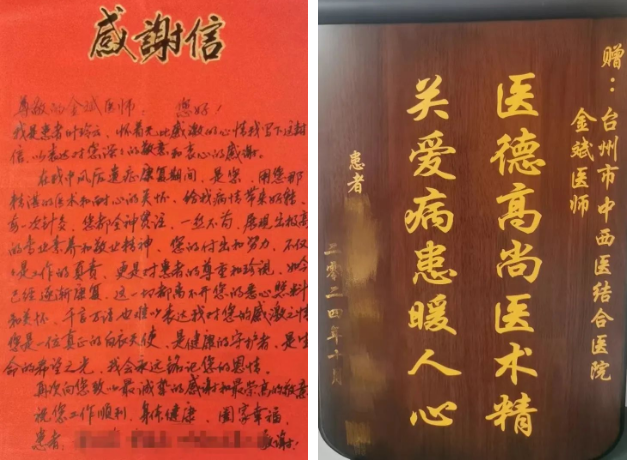 感謝信
尊敬的金斌医师: 您好!
我是患者叶 怀着无比感激的心情我写下这封
信,以表达对您深深的敬意和衷心的感谢。
在我中风后遗症康复期间,是您,用您那
精湛的医术和耐心的关怀,给我病情带来好转,
每一次针灸,您都全神贯注,一丝不苟,展现出极高
的专业素养和敬业精神,您的付出和努力,不仅
是工作的负责,更是对患者的尊重和珍视,如今
已经逐渐康复,这一切都离不开您的悉心照料
和关怀,千言万语也难以表达我对您的感激之情
您是一位真正的白衣天使,是健康的守护者,是生
命的希望之光,我会永远铭记您的恩情。
再次向您致以最诚挚的感谢和最崇高的敬意
祝您工作顺利,身体健康,阖家幸福,
患者: 敬谢!
赠:台州市中西医结合医院
金斌医师
医德高尚医术精
关爱病患暖人心
患者
二零二四年十月